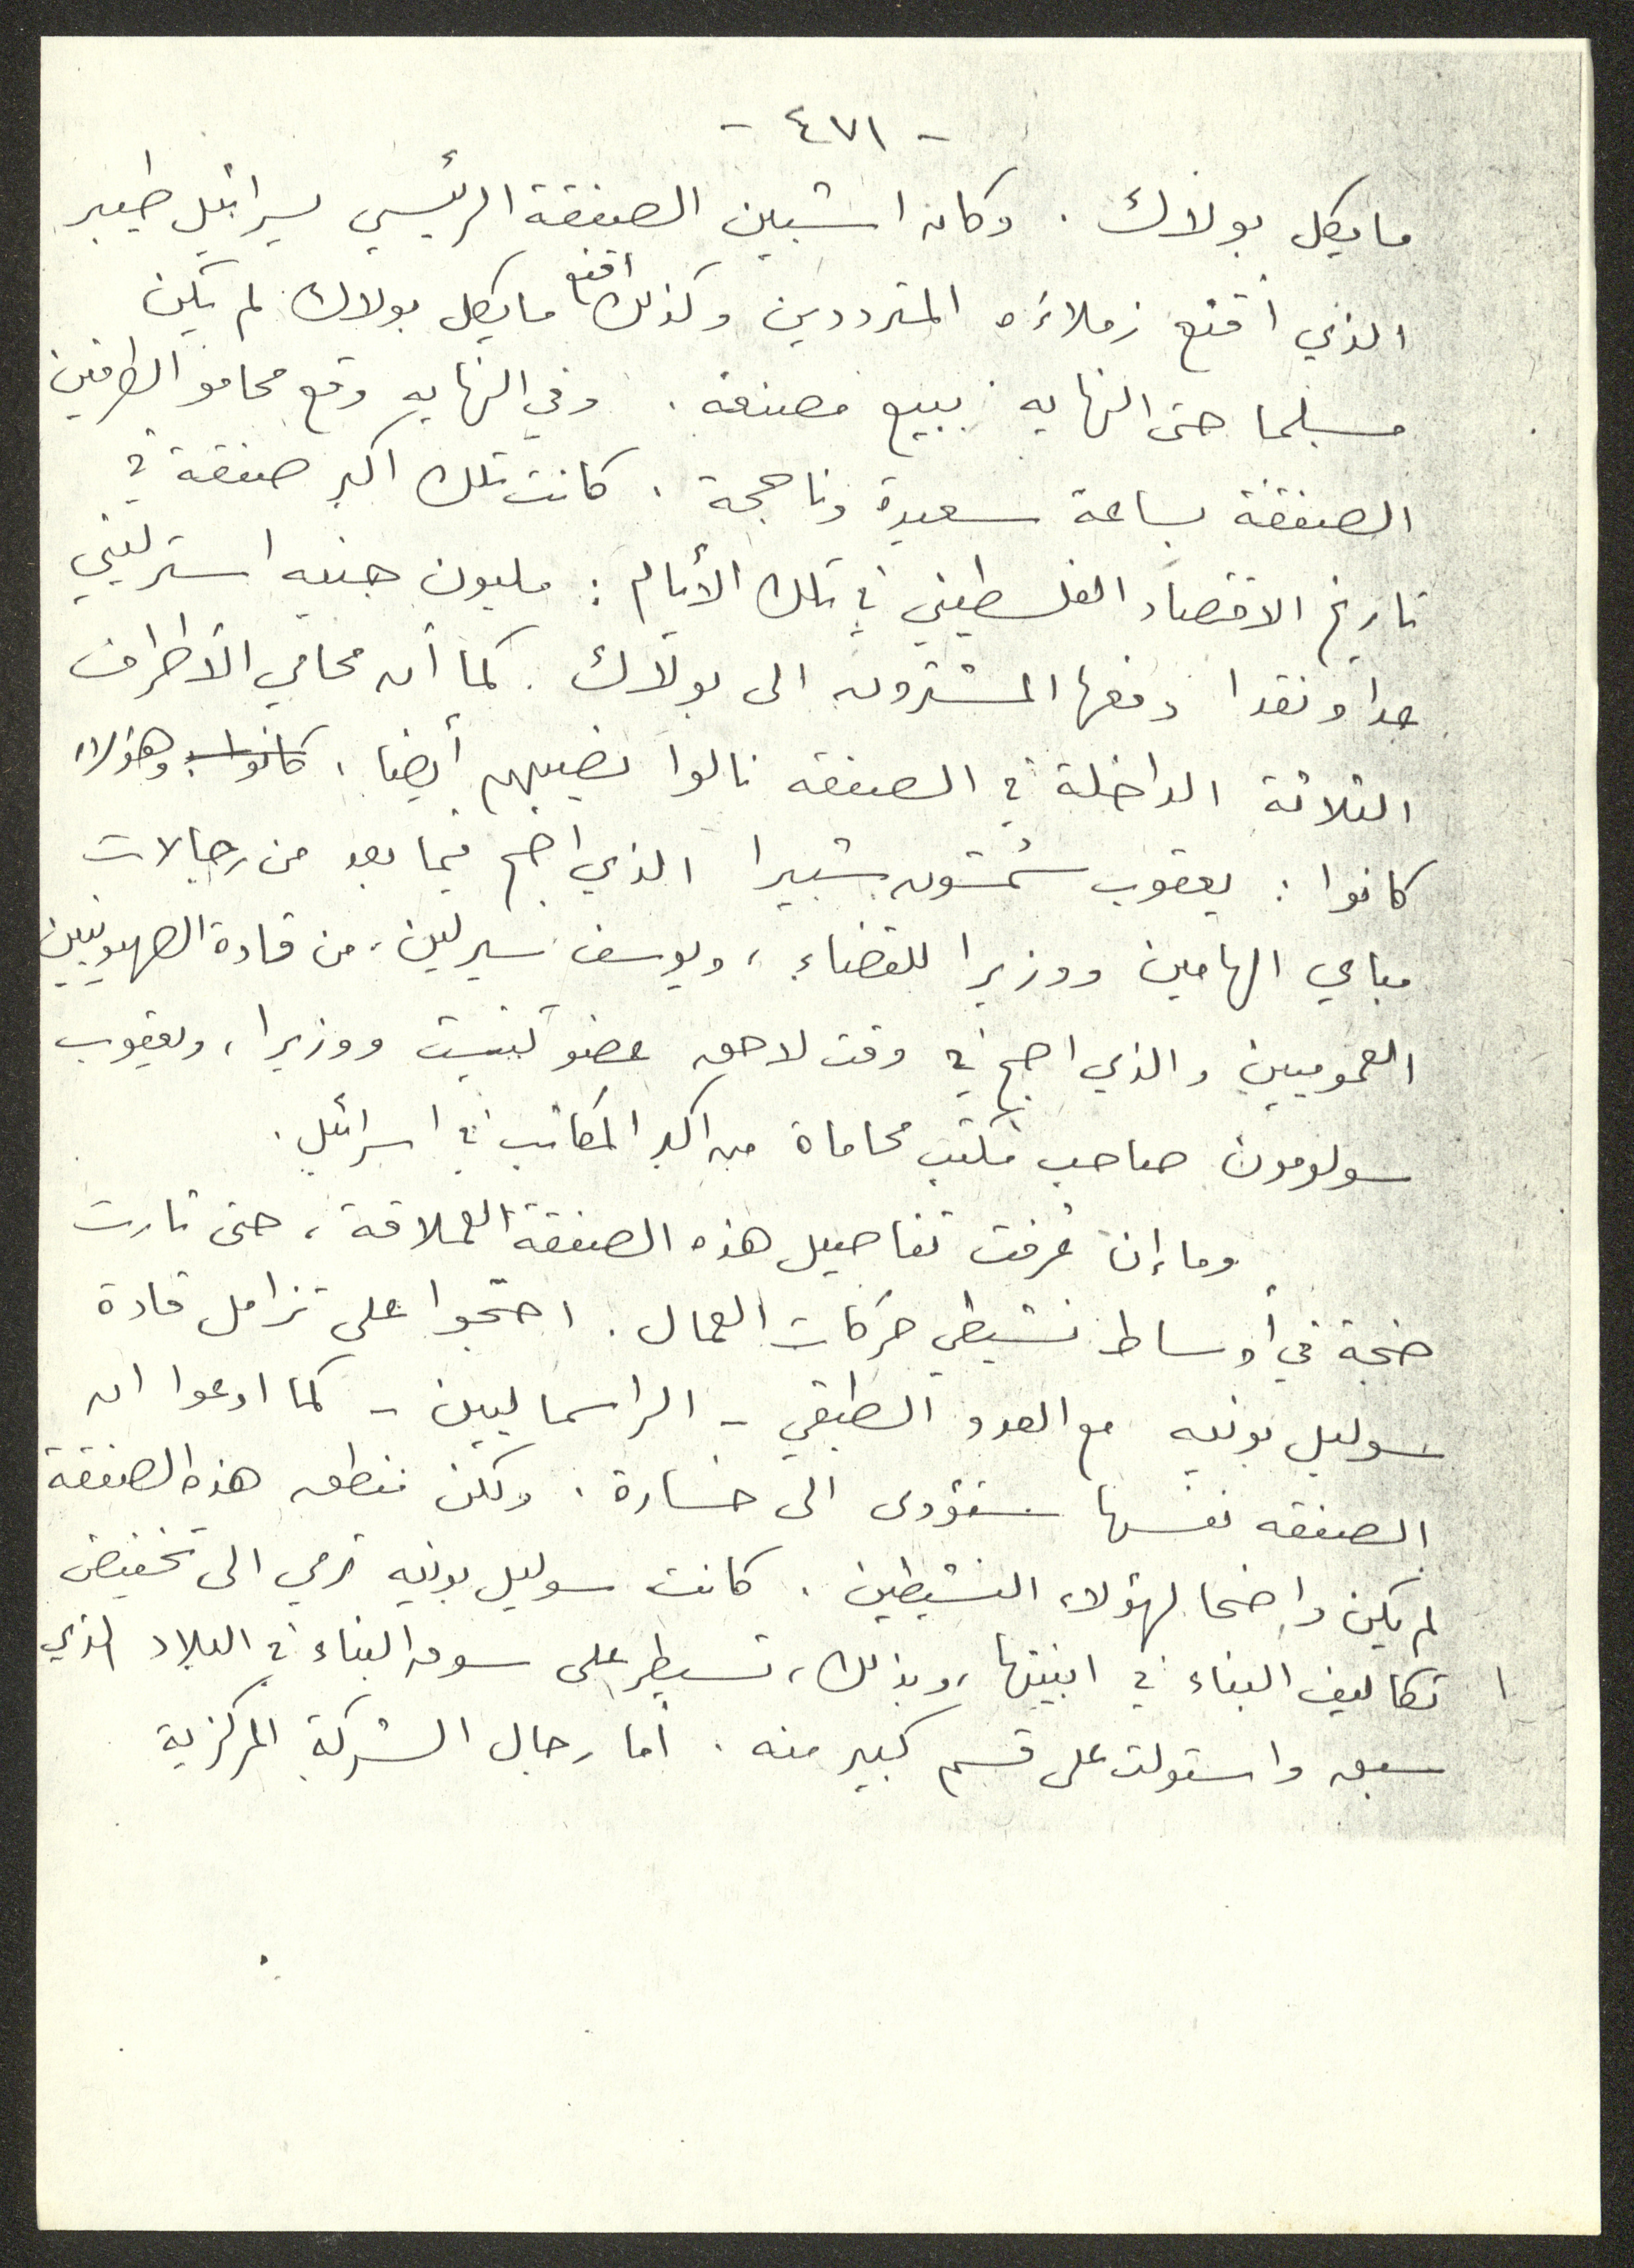 - ٤٧١ -
مايكل بولاك . وكان اشبين الصفقة الرئيسي يسرائيل طيبر
الذي أقنع زملاءه المترددين وكذلك أقنع مايكل بولاك لم يكن
مسلما حتى النهايه ببيع مصنعه . وفي النهايه وقع محامو الطرفين
الصفقة بساعة سعيدة وناجحة . كانت تلك اكبر صفقة في
تاريخ الاقتصاد الفلسطيني في تلك الأيام : مليون جنيه استرليني
عدا ونقدا دفعها المشترون الى بولاك . كما أن محامي الأطراف
الثلاثة الداخلة في الصفقه نالوا نصيبهم أيضا . كانوا وهؤلاء
كانوا : يعقوب شمشون شبيرا الذي اصبح فيما بعد من رجالات
مباي الهامين ووزيرا للقضاء ، ويوسف سيرلين ، من قادة الصهيونيين
العموميين والذي اصبح في وقت لاحق عضو كنيست ووزيرا ، ويعقوب
سولومون صاحب مكتب محاماة من اكبر المكاتب في اسرائيل .
وما إن عُرفت تفاصيل هذه الصفقة العملاقة ، حتى ثارت
ضجة في أوساط نشيطي حركات العمال . احتجوا على تزامل قادة
سوليل بونيه مع العدو الطبقي - الراسماليين - كما ادعوا ان
الصفقه نفسها ستؤدى الى خسارة . ولكن منطق هذه الصفقة
لم يكن واضحا لهؤلاء النشيطين . كانت سوليل بونيه ترمي الى تخفيض
تكاليف البناء في ابنيتها ، وبذلك ، تسيطر على سوق البناء في البلاد الذي
سبق واستولت على قسم كبير منه . أما رجال الشركة المركزية